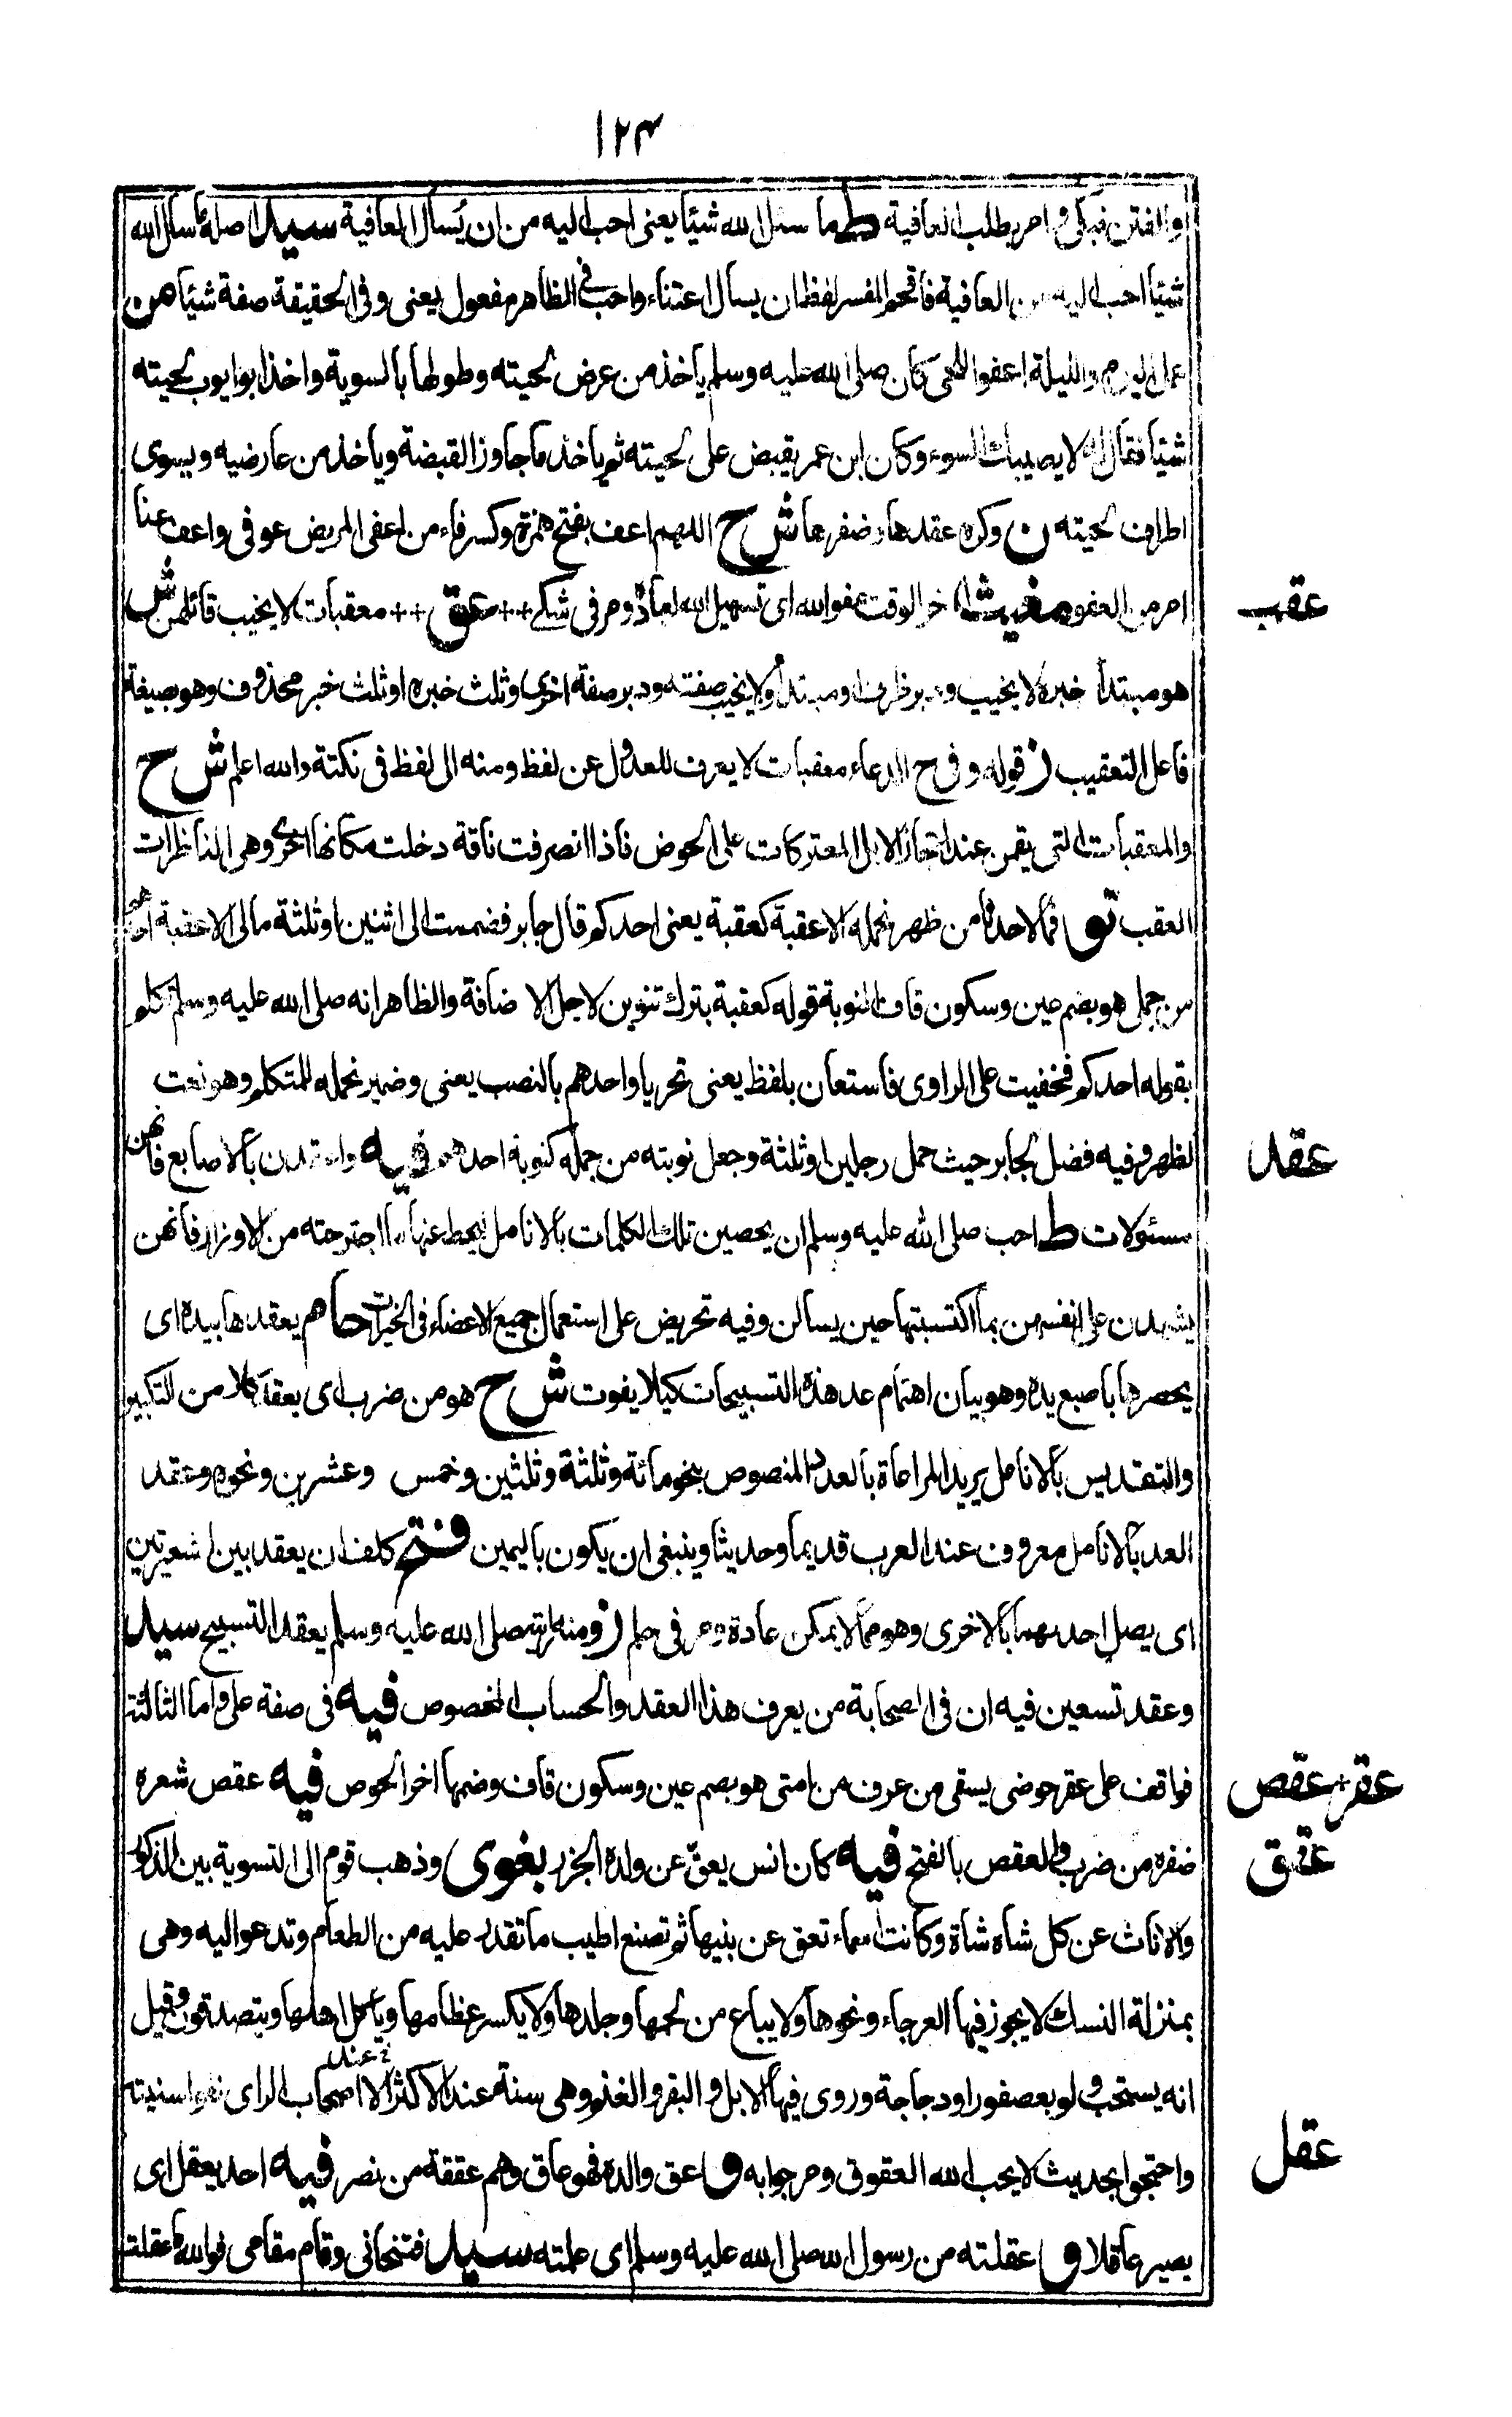 ١٢٣
والفتن فبكى و امر بطلب العافية ط ما سئل الله شيئا يعنى احب اليه من ان يُسأل العافية سيد اصله ما سأل الله
شيئا احب اليه من العافية فاقحم المفسر لفظ ان يسأل اعتناء واحب فى الظاهر مفعول يعنى وفى الحقيقة صفة شيئا من
عمل اليوم والليلة اعفوا اللحى كان صلى الله عليه وسلم يأخذ من عرض لحيته وطولها بالسوية واخذ ابو ايوب لحيته
شيئا فقال له لا يصيبك السوء وكان ابن عمر يقبض على لحيته ثم يأخذ ما جاوز القبضة ويأخذ من عارضيه ويسوى
اطراف لحيته ن وكره عقدها وضفرها ش ح اللهم اعف بفتح همزة وكسر فاء من اعفى المريض عوفى واعف عنا
امر من العفو مغيث اخر الوقت عفو الله اى تسهيل الله لعباده ومر فى شكے ++ عق ++ معقبات لا يخيب قائلهن ش
عقب
هو مبتدأ خبره لا يخيب ودبر ظرف او مبتدأ ولا يخيب صفته ودبر صفة اخرى وثلث خبره او ثلث خبر محذوف وهو بصيغة
فاعل التعقيب ز قوله وفى ح الدعاء معقبات لا يعرف للعدول عن لفظ ومنه الى لفظ فى نكتة والله اعلم ش ح
والمعقبات التى يقمن عند اعجاز الابل المعتركات على الحوض فاذا انصرفت ناقة دخلت مكانها اخرى وهى الناظرات
العقب تو فما لاحدنا من ظهر نحمله الا عقبة كعقبة يعنى احدكم قال جابر فضممت الى اثنين او ثلثة مالى الا عقبة احدهم
من جمل هو بضم عين وسكون قاف النوبة قوله كعقبة بترك تنوين لاجل الاضافة والظاهر انه صلى الله عليه وسلم تكلم
بقوله احدكم فخفيت على الراوى فاستعان بلفظ يعنى تحريا واحدهم بالنصب يعنى وضمير نحمله للمتكلم وهو نعت
لظهر وفيه فضل لجابر حيث حمل رجلين او ثلثة وجعل نوبته من جمله كنوبة احدهم فيه واعقدن بالاصابع فانهن
عقد
مسئولات ط احب صلى الله عليه وسلم ان يحصين تلك الكلمات بالانامل ليحط عنها ما اجترحته من الاوزار فانهن
يشهدن على انفسهن بما اكتسبتها حين يسألن وفيه تحريض على استعمال جميع الاعضاء فى الخيرات حا هم يعقدها بيده اى
يحصرها باصبع يده وهو بيان اهتمام عد هذه التسبيحات كيلا يفوت ش ح هو من ضرب اى يعقد كلا من التكبير
والتقديس بالانامل يريد المراعاة بالعدد المنصوص بنحو مائة وثلثة وثلثين وخمس وعشرين ونحوه وعقد
العد بالانامل معروف عند العرب قديما وحديثا وينبغى ان يكون باليمين فتح كلف ان يعقد بين شعيرتين
اى يصل احدهما بالاخرى وهو مما لا يمكن عادة ومر فى حلم ز ومنه رأيته صلى الله عليه وسلم يعقد التسبيح سيد
وعقد تسعين فيه ان فى الصحابة من يعرف هذا العقد والحساب المخصوص فيه فى صفة على واما الثالثة
فواقف على عقر حوضى يسقى من عرف من امتى هو بضم عين وسكون قاف وضمها اخر الحوض فيه عقص شعره
عقر+عقص
ضفره من ضرب والعقص بالفتح فيه كان انس يعق عن ولده الجزر بغوى وذهب قوم الى التسوية بين الذكور
عقق
والاناث عن كل شاة شاة وكانت اسماء تعق عن بنيها ثم تصنع اطيب ما تقدر عليه من الطعام وتدعو اليه وهى
بمنزلة النسك لا يجوز فيها العرجاء ونحوها ولا يباع من لحمها وجلدها ولا يكسر عظامها ويأكل اهلها ويتصدقون وقيل
انه يستحب ولو بعصفور او دجاجة وروى فيها الابل و البقر والغنم وهى سنة عند الاكثر الا عند اصحاب الراى نفوا سنيته
واحتجوا بحديث لا يحب الله العقوق ومر جوابه و اعق والده فهو عاق وهم عققة من نصر فيه احد يعقل اى
عقل
يصير عاقلا و عقلته من رسول الله صلى الله عليه وسلم اى علمته سيد فتنحانى وقام مقامى فوالله ما عقلت